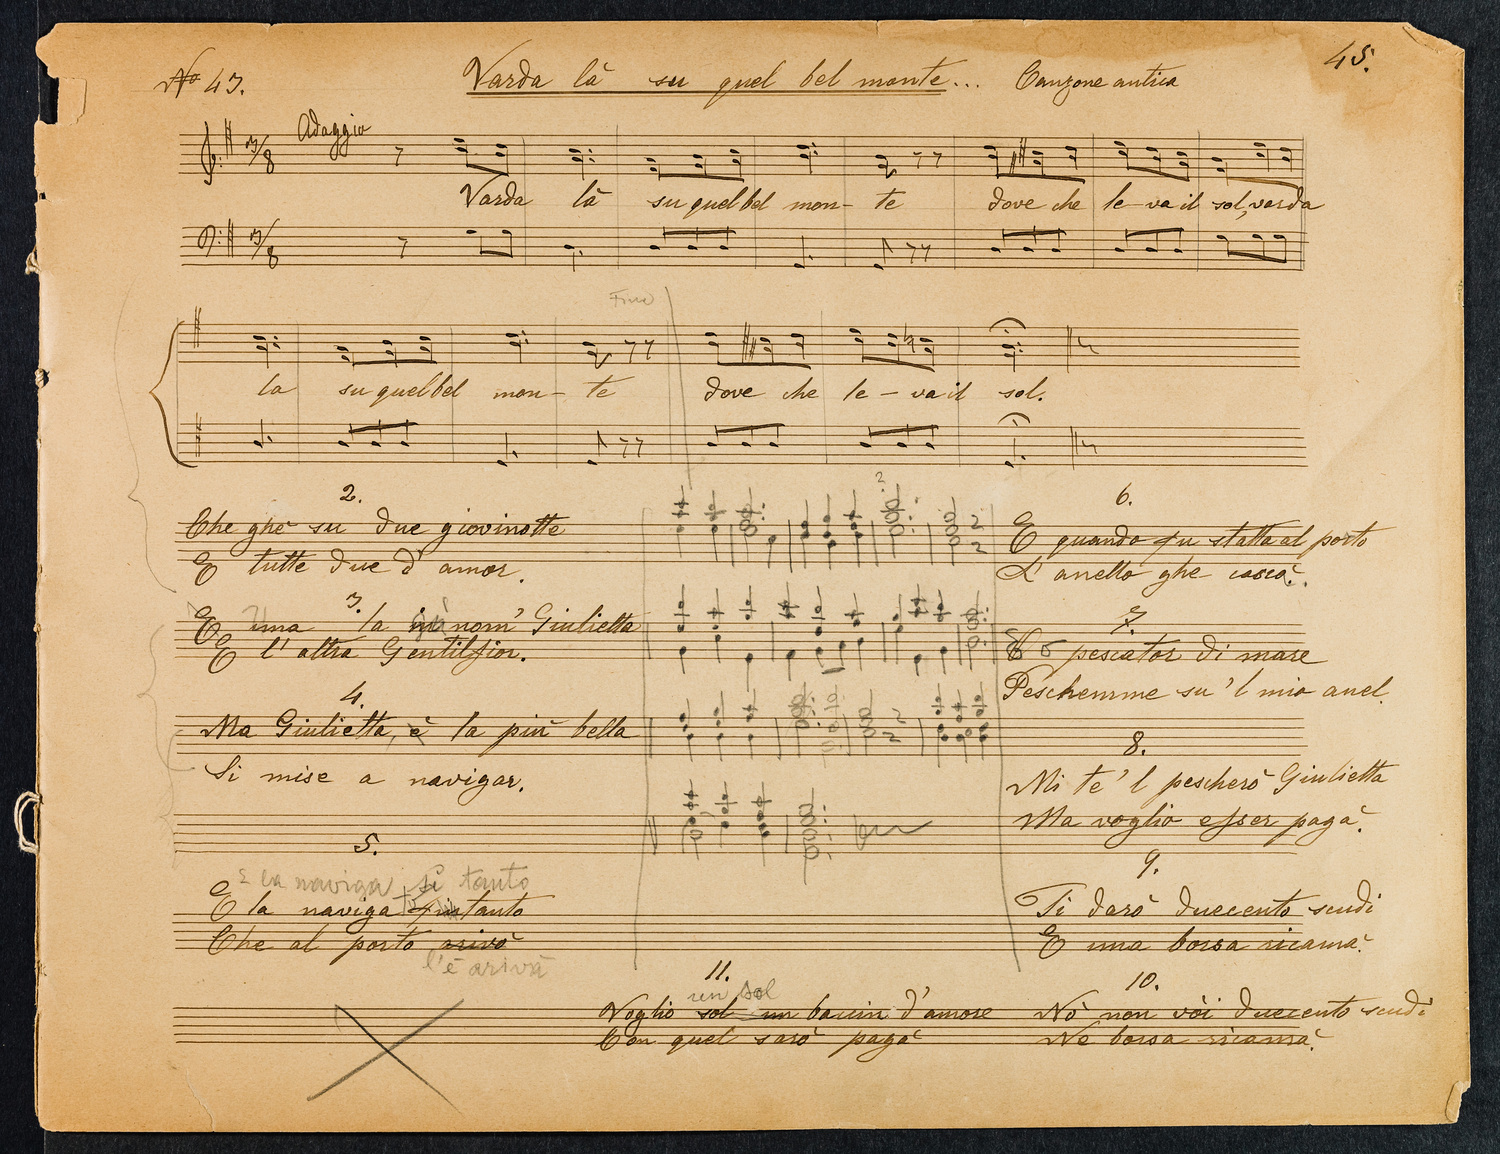 No 43.
Varda là su quel bel monte... Canzone antica
45.
Adaggio
Varda là su quel bel mon- te dove che le-va il sol, varda
Fine
la su quel bel mon- te dove che le-va il sol.
2.
Che ghè su due giovinotte
E tutte due d'amor.
3.
E una la nom' Giulietta
E l'altra Gentilfior.
4.
Ma Giulietta, è la più bella
Si mise a navigar.
5.
E la naviga sì tanto
E la naviga tanto
Che al porto arivò
l'è arivà
6.
E quando fu statta al porto
L'anello ghe cascà.
7.
O pescator di mare
Peschemme su'l mio anel.
8.
Mi te'l pescherò Giulietta
Ma voglio esser pagà.
9.
Ti darò duecento scudi
E una borsa ricamà.
10.
Nò non vòi duecento scudi
Ne borsa ricamà.
11.
un sol
Voglio sol un baccin d'amore
Con quel sarò pagà